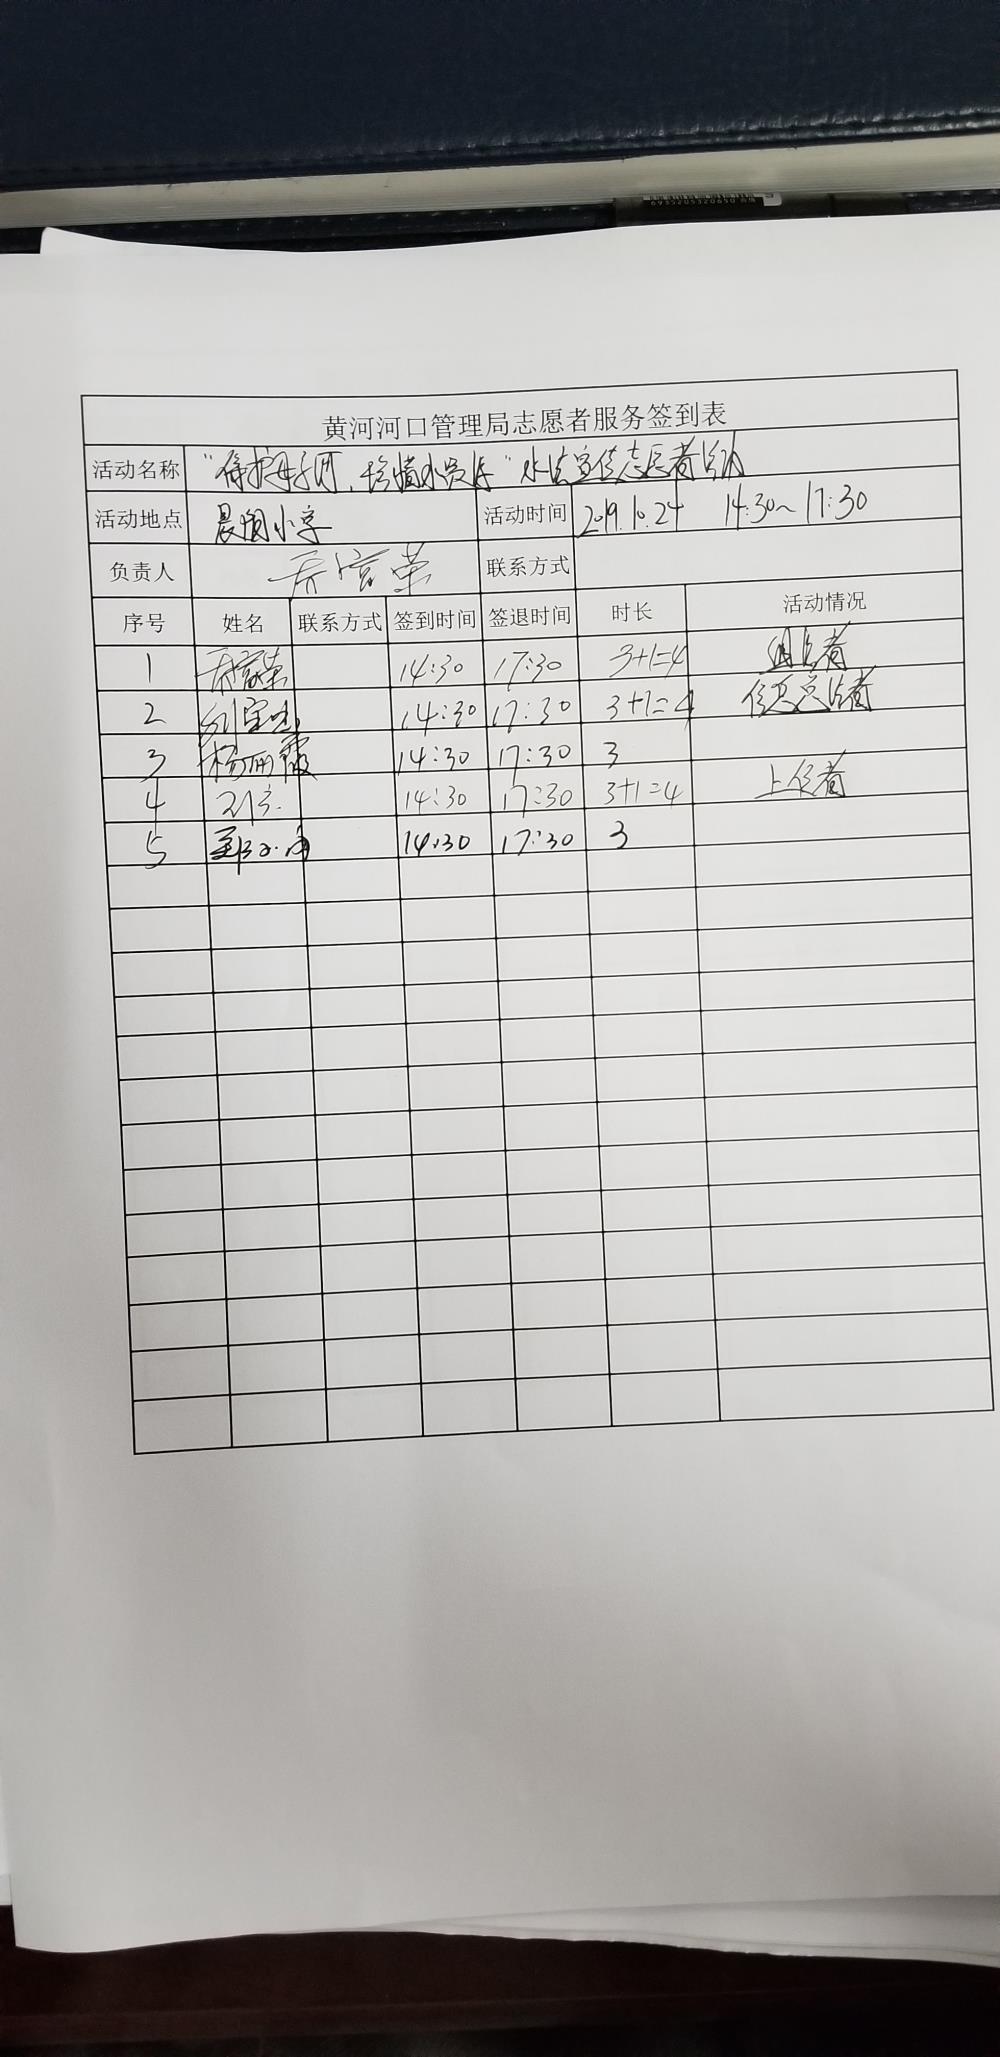 6935205320650
黄河河口管理局志愿者服务签到表
活动名称 "保护母亲河,珍惜水资源"水法宣传志愿者活动
活动地点 晨阳小学 活动时间 2019.10.24 14:30~17:30
负责人 联系方式
序号 姓名 联系方式 签到时间 签退时间 时长 活动情况
1 14:30 17:30 3+1=4 组织者
2 14:30 17:30 3+1=4 信息总结者
3 杨丽霞 14:30 17:30 3
4 14:30 17:30 3+1=4 上传者
5 14:30 17:30 3